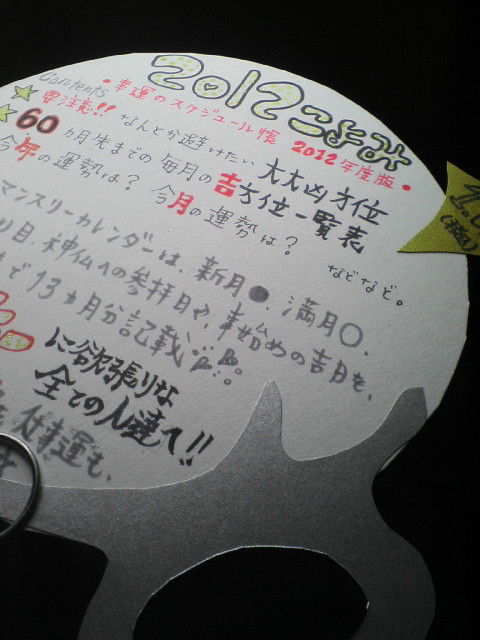 2012こよみ
Contents
・幸運のスケジュール帳 2012年度版・
要注意!! なんとか避けたい 大大凶方位
60ヵ月先までの 毎月の吉方位一覧表
今年の運勢は? 今月の運勢は? などなど。
マンスリーカレンダーは、新月●、満月○、
り目、神仏への参拝日や、事始めの吉日を、
で13ヵ月分記載
に欲張りな
全ての人達へ!!
仕事運も、